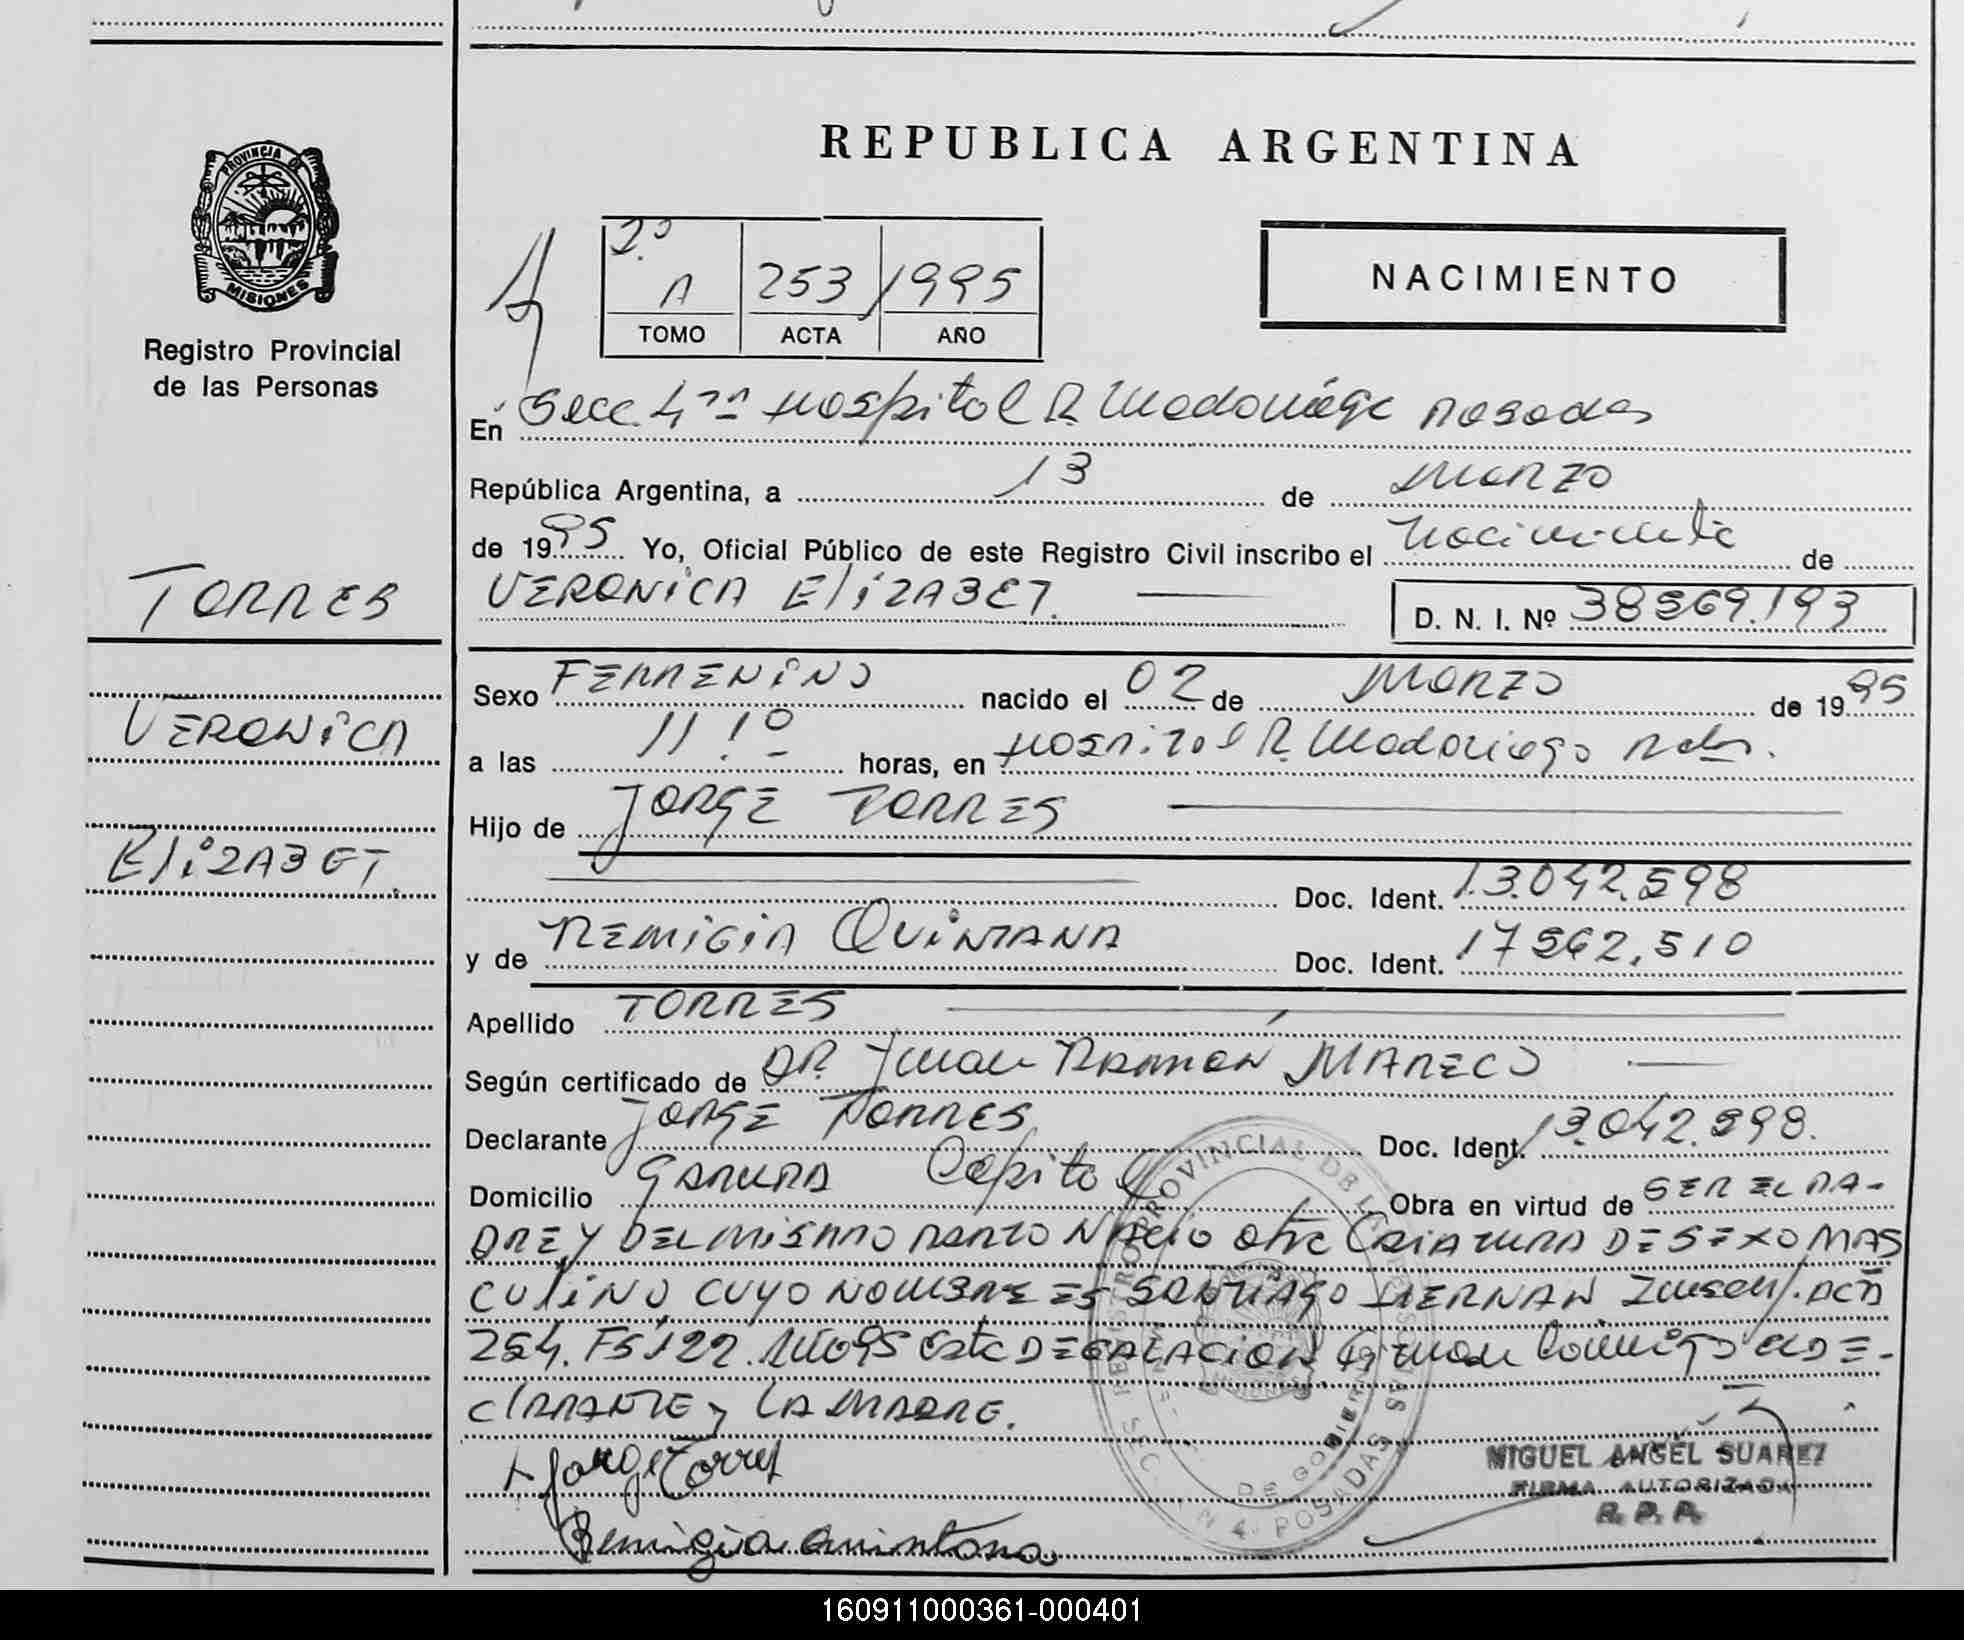 REPUBLICA ARGENTINA
PROVINCIA DE
MISIONES
Registro Provincial
de las Personas
2º
A 253 1995
TOMO ACTA AÑO
NACIMIENTO
En Secc. 4ta Hospital R. Madariaga Posadas
República Argentina, a 13 de Marzo
de 1995 Yo, Oficial Público de este Registro Civil inscribo el Nacimiento de
VERONICA ElizABET. D. N. I. Nº 38569.193
TORRES
VERONICA
ElizABET.
Sexo FEMENINO nacido el 02 de Marzo de 1995
a las 11:10 horas, en Hospital R. Madariaga Pdas.
Hijo de JORGE TORRES
Doc. Ident. 13.042.598
y de REMIGIA QUINTANA Doc. Ident. 17562.510
Apellido TORRES
Según certificado de DR. Juan RAMON MARECO
Declarante JORGE TORRES Doc. Ident. 13.042.598.
Domicilio GARUPA Capital Obra en virtud de SER EL PA-
DRE, Y DEL MISMO PARTO NACIO otra CRIATURA DE SEXO MAS
CULINO, CUYO NOMBRE ES SANTIAGO HERNAN Inscrip. ACTA
254. Fs 122. Año95 Esta DECLARACION firman Conmigo el DE-
CLARANTE y LA MADRE.
Jorge Torres
Remigia Quintana
REGISTRO PROVINCIAL DE LAS PERSONAS
SEC. N 4. POSADAS
MIGUEL ANGEL SUAREZ
FIRMA AUTORIZADA
R. P. P.
160911000361-000401